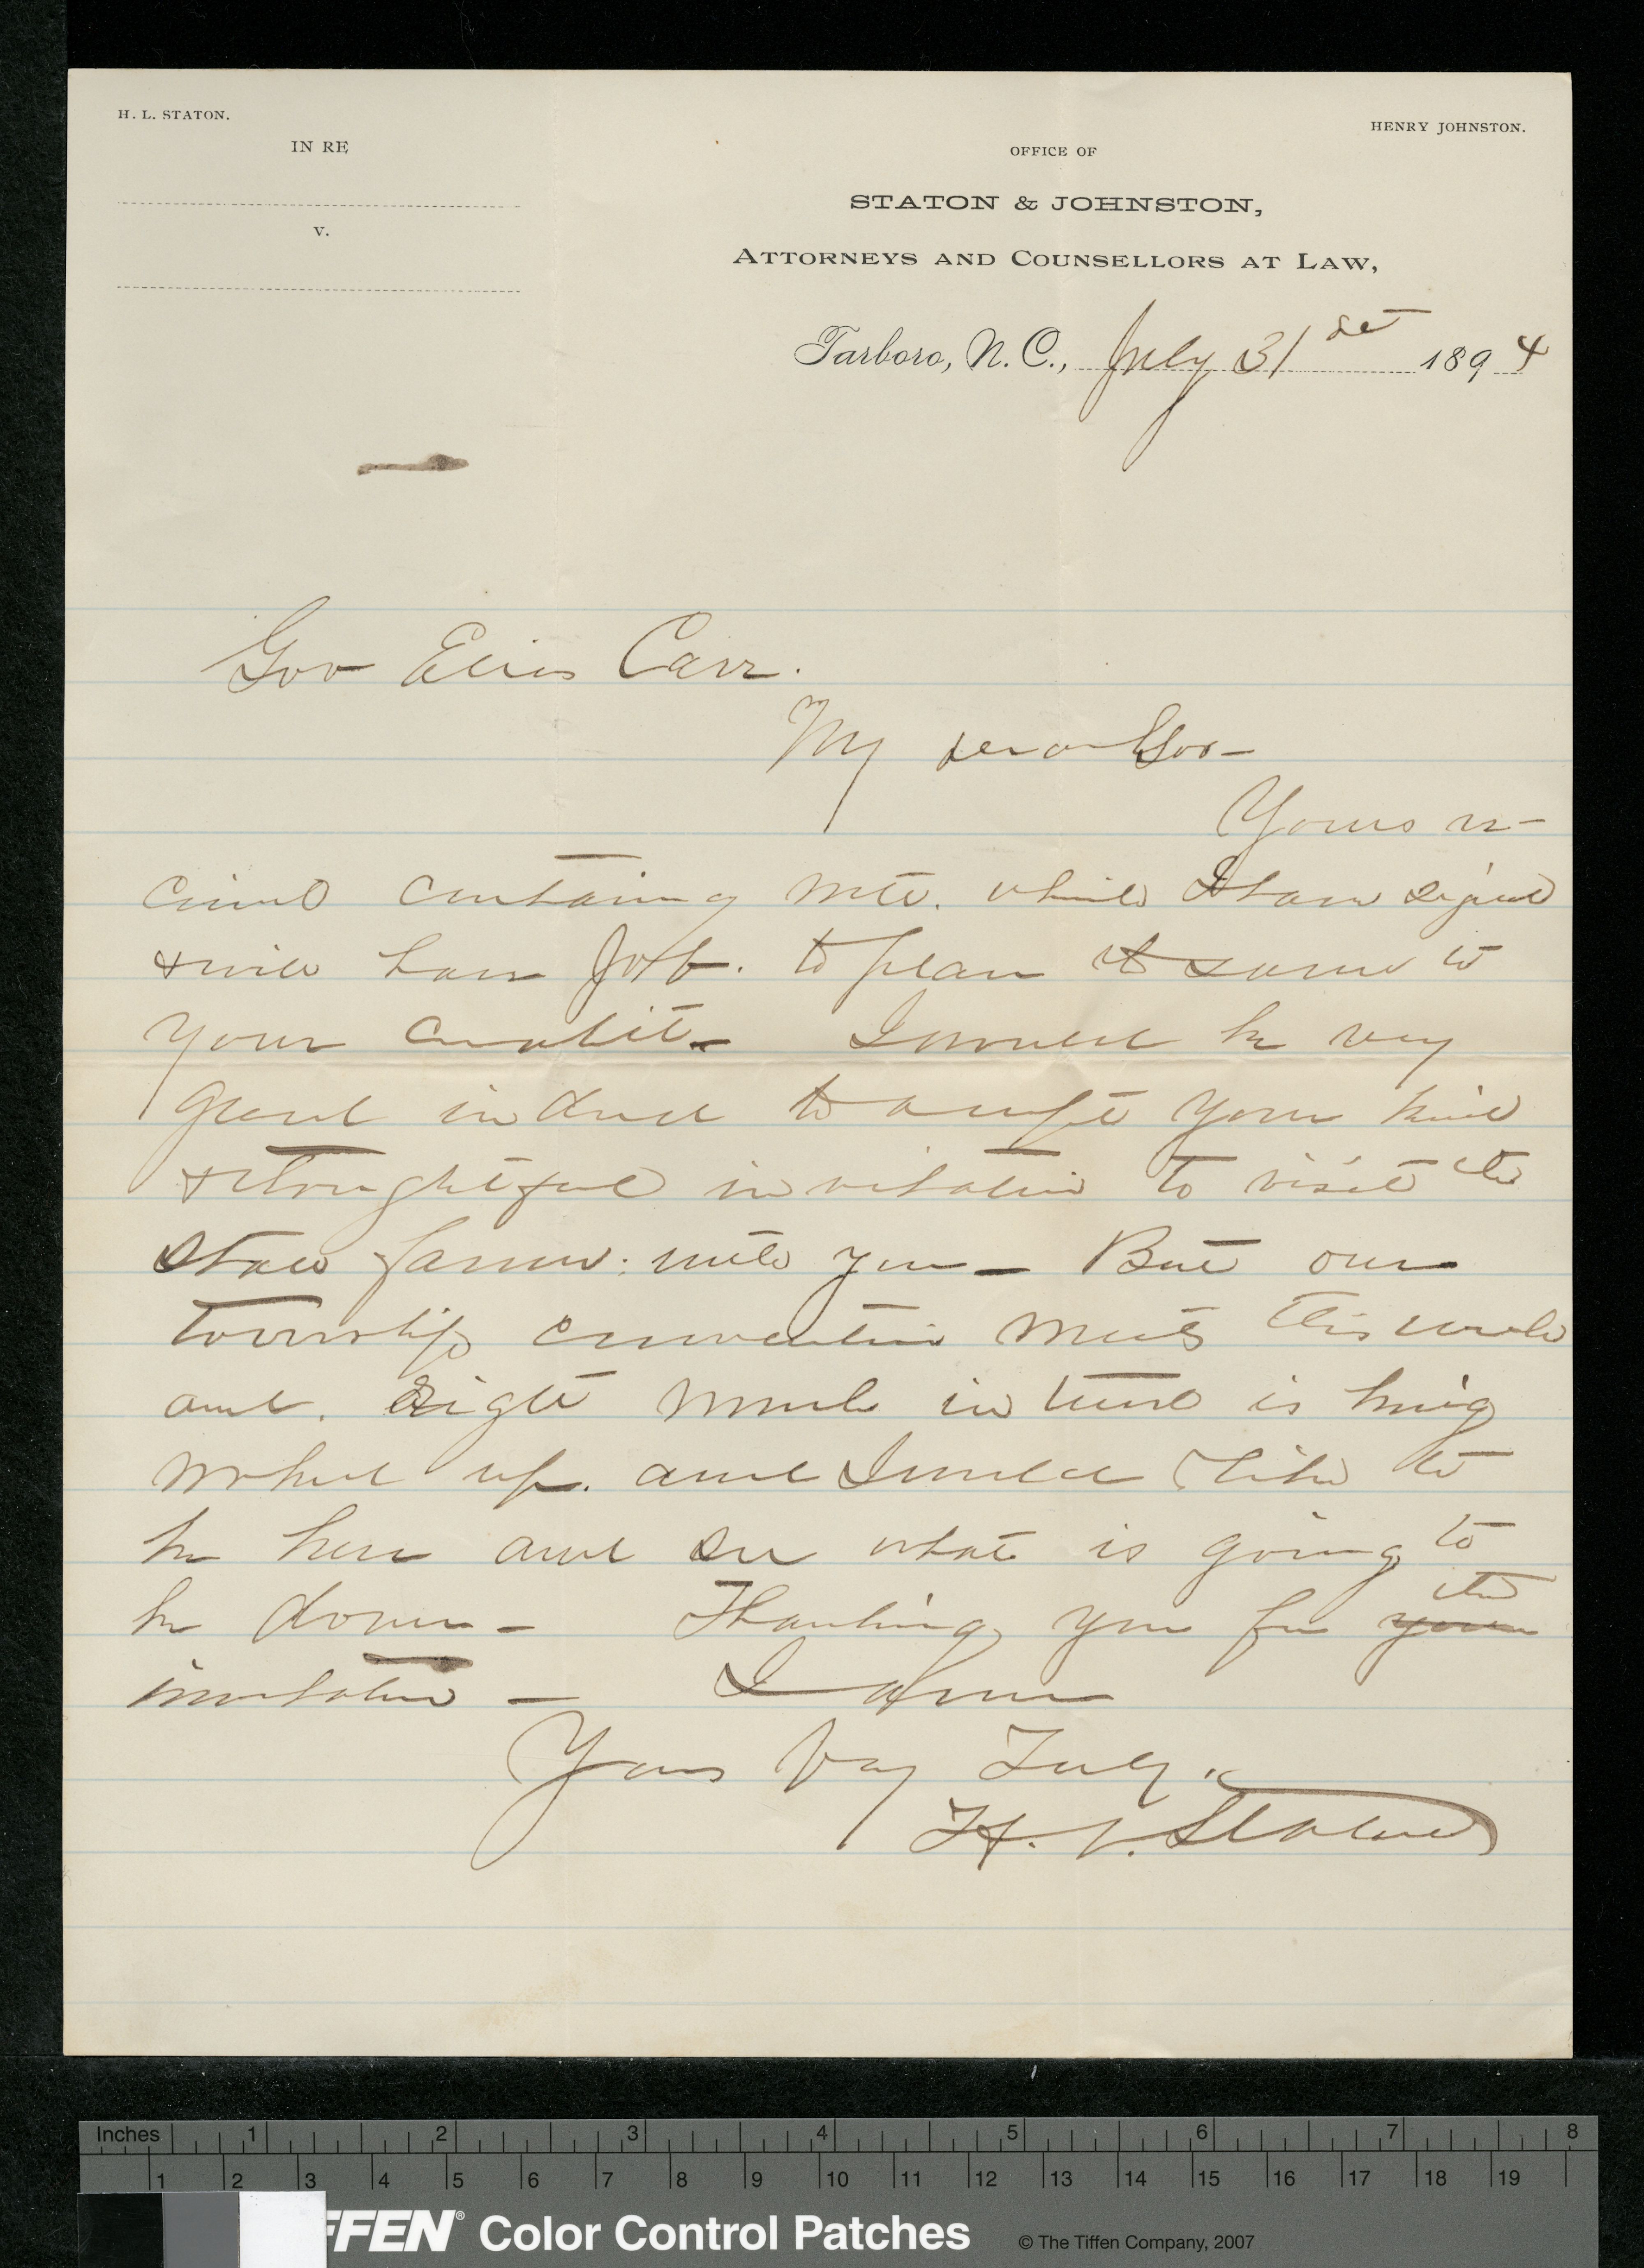 H. L. STATON.
HENRY JOHNSTON.
IN RE
V.
OFFICE OF
STATON & JOHNSTON,
ATTORNEYS AND COUNSELLORS AT LAW,
Tarboro, N. C., July 31st 1894
Gov Elias Carr.
My dear Gov-
Yours re-
ceived containing note. which I have signed
& will have to place to same to
your credit- I would be very
glad indeed to accept your kind
& thoughtful invitation to visit the
State farms. with you- But our
township convention meets this week
and. right much interest is being
worked up. and I would like to
be here and see what is going to
be done- Thanking you for your the
invitation - I am
Yours Very Truly.
H. L. Staton
Inches 1 2 3 4 5 6 7 8
1 2 3 4 5 6 7 8 9 10 11 12 13 14 15 16 17 18 19
FFEN® Color Control Patches © The Tiffen Company, 2007